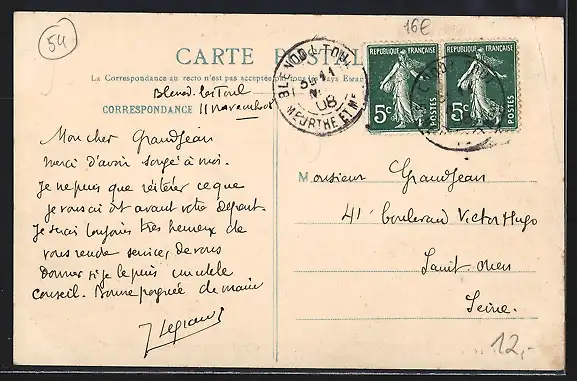 54
16€
CARTE POSTALE
La Correspondance au recto n'est pas acceptée par tous les Pays Etran
Blenod les Toul
11 novembre
CORRESPONDANCE
BLENOD-L-TOUL
11
08
MEURTHE ET M
REPUBLIQUE FRANÇAISE
5c
POSTES
REPUBLIQUE FRANÇAISE
5c
POSTES
Mon cher Grandjean
merci d'avoir songé à moi.
Je ne puis que réitérer ce que
je vous ai dit avant votre départ.
Je serai toujours très heureux de
vous rendre service, de vous
donner si je le puis un utile
conseil. Bonne poignée de main
Monsieur Grandjean
41 boulevard Victor Hugo
Saint Ouen
Seine.
12,-